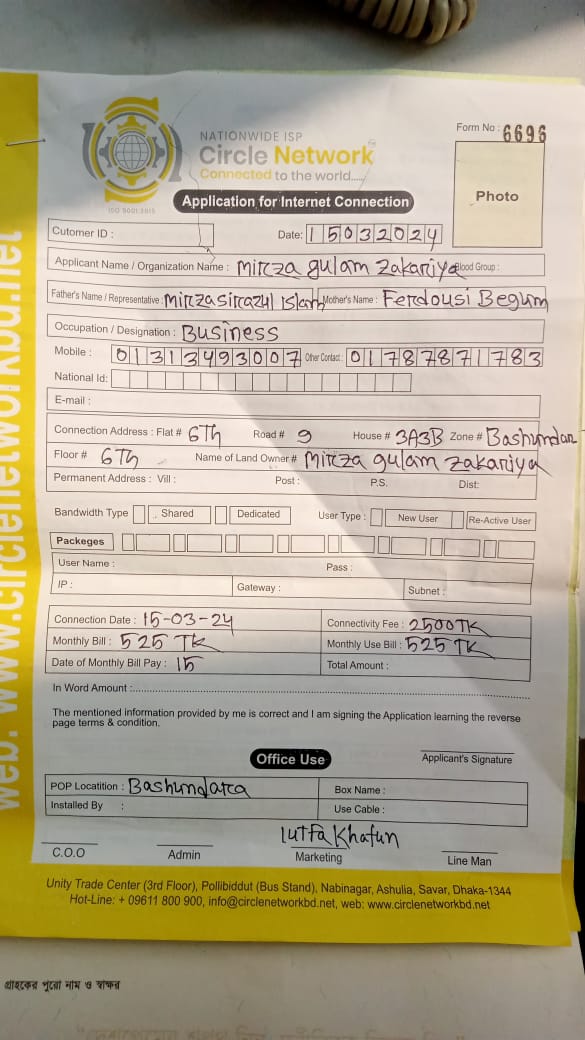 NATIONWIDE ISP
Circle Network
Connected to the world.....
ISO 9001:2015
Form No : 6696
Photo
Application for Internet Connection
Cutomer ID :
Date: 15032024
Applicant Name / Organization Name : Mirza gulam Zakariya Blood Group :
Father's Name / Representative : Mirza sirazul Islam Mother's Name : Ferdousi Begum
Occupation / Designation : Business
Mobile : 01313493007 Other Contact : 01787871783
National Id:
E-mail :
Connection Address : Flat # 6Th Road # 9 House # 3A3B Zone # Bashundar
Floor # 6Th Name of Land Owner # Mirza gulam Zakariya
Permanent Address : Vill : Post : P.S. Dist:
Bandwidth Type Shared Dedicated User Type : New User Re-Active User
Packeges
User Name : Pass :
IP : Gateway : Subnet :
Connection Date : 15-03-24 Connectivity Fee : 2500TK
Monthly Bill : 525 TK Monthly Use Bill : 525 TK
Date of Monthly Bill Pay : 15 Total Amount :
In Word Amount :
The mentioned information provided by me is correct and I am signing the Application learning the reverse
page terms & condition.
Applicant's Signature
Office Use
POP Locatition : Bashundara Box Name :
Installed By : Use Cable :
lutfa Khatun
C.O.O Admin Marketing Line Man
Unity Trade Center (3rd Floor), Pollibiddut (Bus Stand), Nabinagar, Ashulia, Savar, Dhaka-1344
Hot-Line: + 09611 800 900, info@circlenetworkbd.net, web: www.circlenetworkbd.net
web: www.circlenetworkbd.net
গ্রাহকের পুরো নাম ও স্বাক্ষর